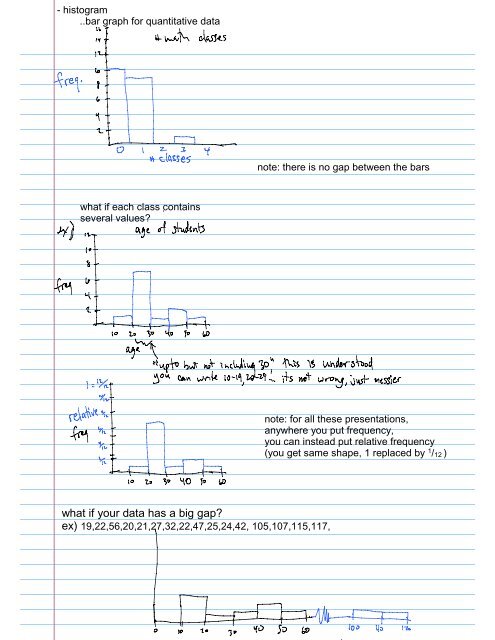 - histogram
..bar graph for quantitative data
# math classes
16
14
12
10
8
6
4
2
freq.
0 1 2 3 4
# classes
note: there is no gap between the bars
what if each class contains
several values?
ex) age of students
12
10
8
6
4
2
freq
10 20 30 40 50 60
age
"up to but not including 30" this is understood
you can write 10-19, 20-29... its not wrong, just messier
1 = 12/12
relative
freq
2/12
10 20 30 40 50 60
note: for all these presentations,
anywhere you put frequency,
you can instead put relative frequency
(you get same shape, 1 replaced by 1/12 )
what if your data has a big gap?
ex) 19,22,56,20,21,27,32,22,47,25,24,42, 105,107,115,117,
0 10 20 30 40 50 60 100